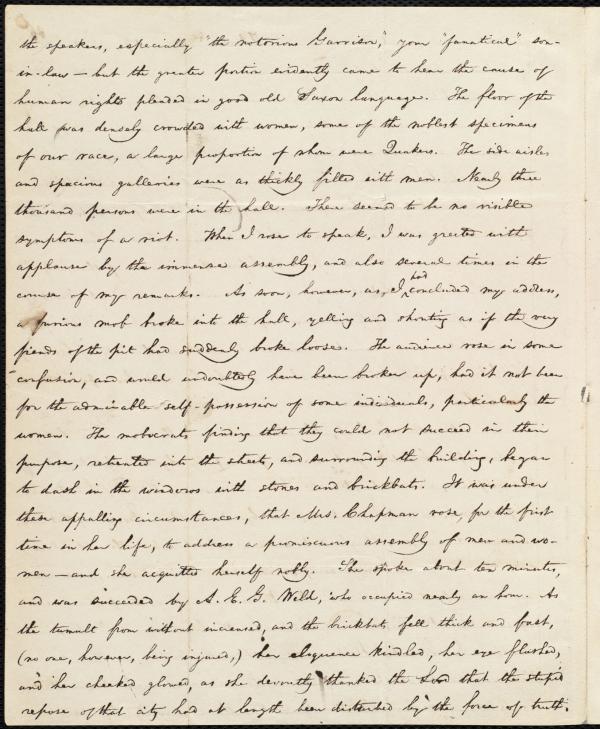 the speakers, especially "the notorious Garrison," your "fanatical" son-
in-law — but the greater portion evidently came to hear the cause of
human rights pleaded in good old Saxon language. The floor of the
hall was densely crowded with women, some of the noblest specimens
of our race, a large proportion of whom were Quakers. The side aisles
and spacious galleries were as thickly filled with men. Nearly three
thousand persons were in the hall. There seemed to be no visible
symptoms of a riot. When I rose to speak, I was greeted with
applause by the immense assembly, and also several times in the
course of my remarks. As soon, however, as I had concluded my address,
a furious mob broke into the hall, yelling and shouting as if the very
fiends of the pit had suddenly broke loose. The audience rose in some
confusion, and would undoubtedly have been broken up, had it not been
for the admirable self-possession of some individuals, particularly the
women. The mobocrats finding that they could not succeed in their
purpose, retreated into the streets, and surrounding the building, began
to dash in the windows with stones and brickbats. It was under
these appalling circumstances, that Mrs. Chapman rose, for the first
time in her life, to address a promiscuous assembly of men and wo-
men — and she acquitted herself nobly. She spoke about ten minutes,
and was succeeded by A. E. G. Weld, who occupied nearly an hour. As
the tumult from without increased, and the brickbats fell thick and fast,
(no one, however, being injured,) her eloquence kindled, her eye flashed,
and her cheeked glowed, as she devoutly thanked the Lord that the stupid
repose of that city had at length been disturbed by the force of truth.